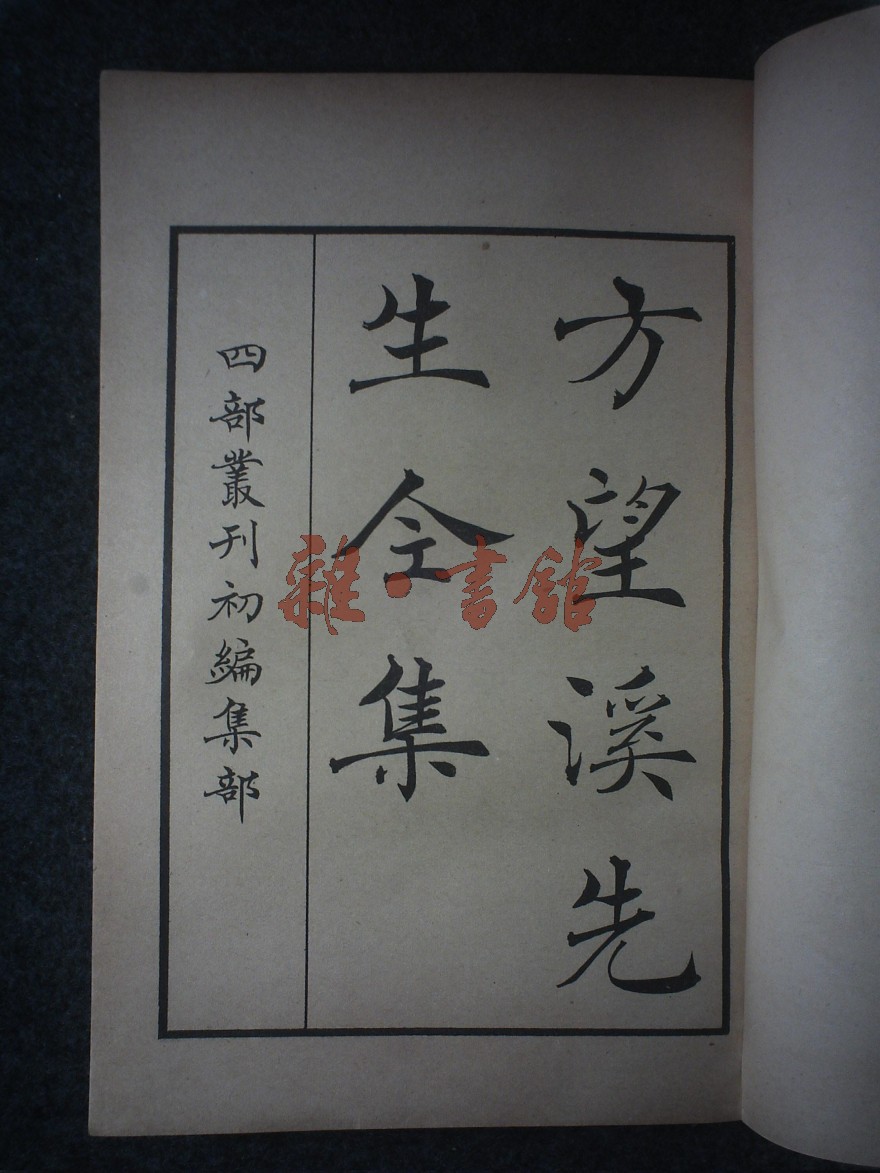 方望溪先
生全集
四部叢刊初編集部
雜·書館